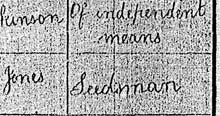 kinson Of independent
means
Jones Seedsman